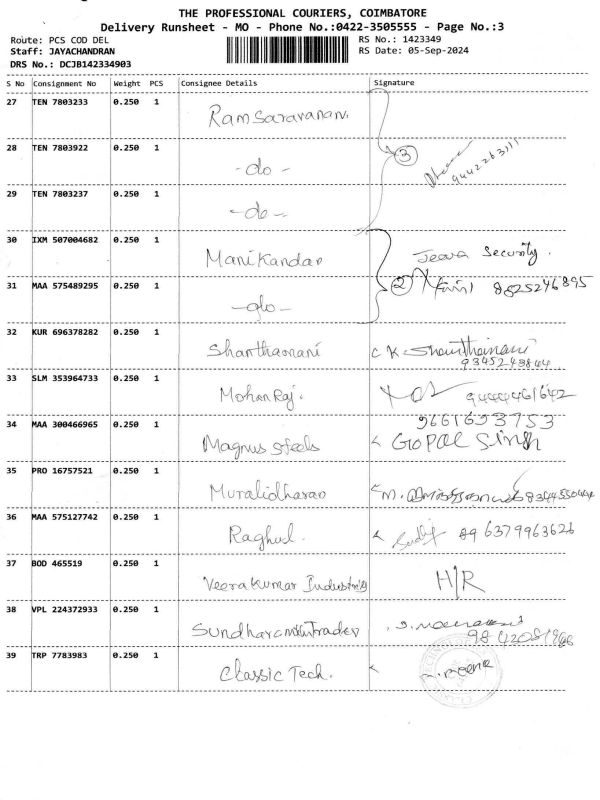 THE PROFESSIONAL COURIERS, COIMBATORE
Delivery Runsheet - MO - Phone No.:0422-3505555 - Page No.:3
Route: PCS COD DEL
RS No.: 1423349
Staff: JAYACHANDRAN
RS Date: 05-Sep-2024
DRS No.: DCJB142334903
S No Consignment No Weight PCS Consignee Details Signature
27 TEN 7803233 0.250 1 Ram Saravanan.
28 TEN 7803922 0.250 1 -do- 3 9442263111
29 TEN 7803237 0.250 1 -do-
30 IXM 507004682 0.250 1 Manikandan Jeeva Security.
31 MAA 575489295 0.250 1 -do- 2 8825246895
32 KUR 696378282 0.250 1 Shanthamani C K Shanthamani
9345243844
33 SLM 353964733 0.250 1 Mohan Raj. 9444461642
34 MAA 300466965 0.250 1 Magnus Steels 9661693753
GOPAL SINGH
35 PRO 16757521 0.250 1 Muralidharan M.
36 MAA 575127742 0.250 1 Raghul. 89 6379963626
37 BOD 465519 0.250 1 Veerakumar Industries H/R
38 VPL 224372933 0.250 1
39 TRP 7783983 0.250 1 Classic Tech.